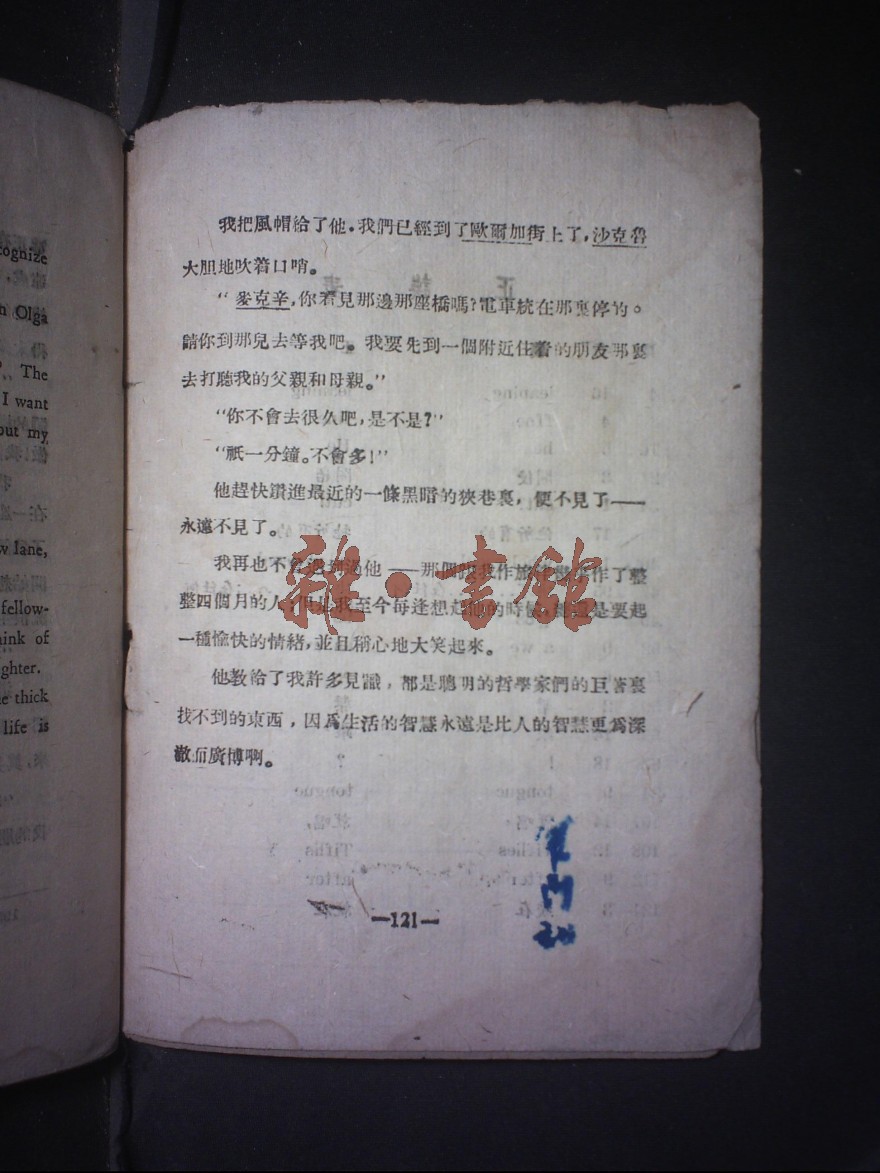 cognize
Olga
The
I want
out my
w lane,
fellow-
ink of
ghter.
e thick
life is
我把風帽給了他。我們已經到了歐爾加街上了，沙克魯
大胆地吹着口哨。
“麥克辛，你看見那邊那座橋嗎？電車統在那裏停的。
請你到那兒去等我吧。我要先到一個附近住着的朋友那裏
去打聽我的父親和母親。”
“你不會去很久吧，是不是？”
“祇一分鐘。不會多！”
他趕快鑽進最近的一條黑暗的狹巷裏，便不見了——
永遠不見了。
我再也不會遇到過他——那個跟我作旅伴作了整
整四個月的人；但是我至今每逢想起他的時候，總還是要起
一種愉快的情緒，並且稱心地大笑起來。
他教給了我許多見識，都是聰明的哲學家們的巨著裏
找不到的東西，因爲生活的智慧永遠是比人的智慧更爲深
澈而廣博啊。
—121—
雜·書館